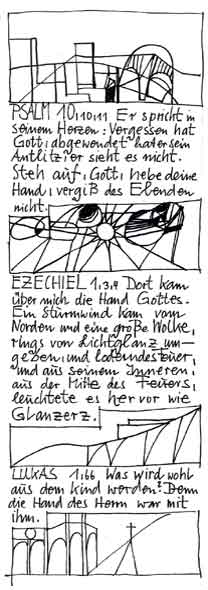 PSALM 10,10,11 Er spricht in
seinem Herzen: Vergessen hat
Gott, abgewendet hat er sein
Antlitz, er sieht es nicht.
Steh auf, Gott, hebe deine
Hand, vergiß des Elenden
nicht.
EZECHIEL 1,3,4 Dort kam
über mich die Hand Gottes.
Ein Sturmwind kam vom
Norden und eine große Wolke,
rings von Lichtglanz um-
geben, und loderndes Feuer,
und aus seinem Inneren,
aus der Mitte des Feuers,
leuchtete es hervor wie
Glanzerz.
LUKAS 1,66 Was wird wohl
aus dem Kind werden? Denn
die Hand des Herrn war mit
ihm.